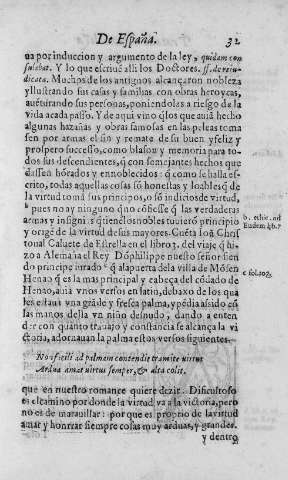 De España. 32
ua por induccion y argumento de la ley, quidam con
sulebat. Y lo que escriuẽ alli los Doctores. ff. de re iu-
dicata. Muchos de los antiguos alcançaron nobleza
yllustrando sus casas y familias con obras heroycas,
auẽturando sus personas, poniendolas a riesgo de la
vida a cada passo. Y de aqui vino q̃ los que auiã hecho
algunas hazañas y obras famosas en las peleas toma
sen por armas el fin y remate de su buen y feliz y
prospero successo, como blason y memoria para to-
dos sus descendientes, q̃ con semejantes hechos que
dassen hõrados y ennoblecidos: q̃ como se halla es-
crito, todas aquellas cosas sõ honestas y loables q̃ de
la virtud tomã sus principos, o sõ indicios de virtud,
b pues no ay ninguno que cõfiesse q̃ las verdaderas
armas y insigniẽs de los nobles tuuierõ principio
y origẽ de la virtud de sus mayores. Cuẽta Ioã Chris
tonal Caluete de Estrella en el libro 3. del viaje q̃ hi-
zo a Alemania el Rey Dõ philippe nuestro señor sien
do principe jurado c q̃ a la puerta de la villa de Mõs en
Henao q̃ es la mas principal y cabeça del cõdado de
Henao, auia vnos versos en latin, debaxo de los que
les estaua vna grãde y fresca palma, y pẽdia asido cõ
las manos della vn niño desnudo, dando a enten
der con quanto trauajo y constancia se alcança la vi
ctoria, adornauan la palma estos versos siguientes.
Non facili ad palmam contendit tramite uirtus
Ardua amat uirtus semper, & alta colit.
que en nuestro romance quiere dezir. Dificultoso
es el camino por donde la virtud va a la victoria, pero
no es de marauillar: porque es proprio de la virtud
amar y honrrar siempre cosas muy arduas, y grandes.
y dentro
b. ethic. ad
Eudem. lib. 7
c fol. 103.